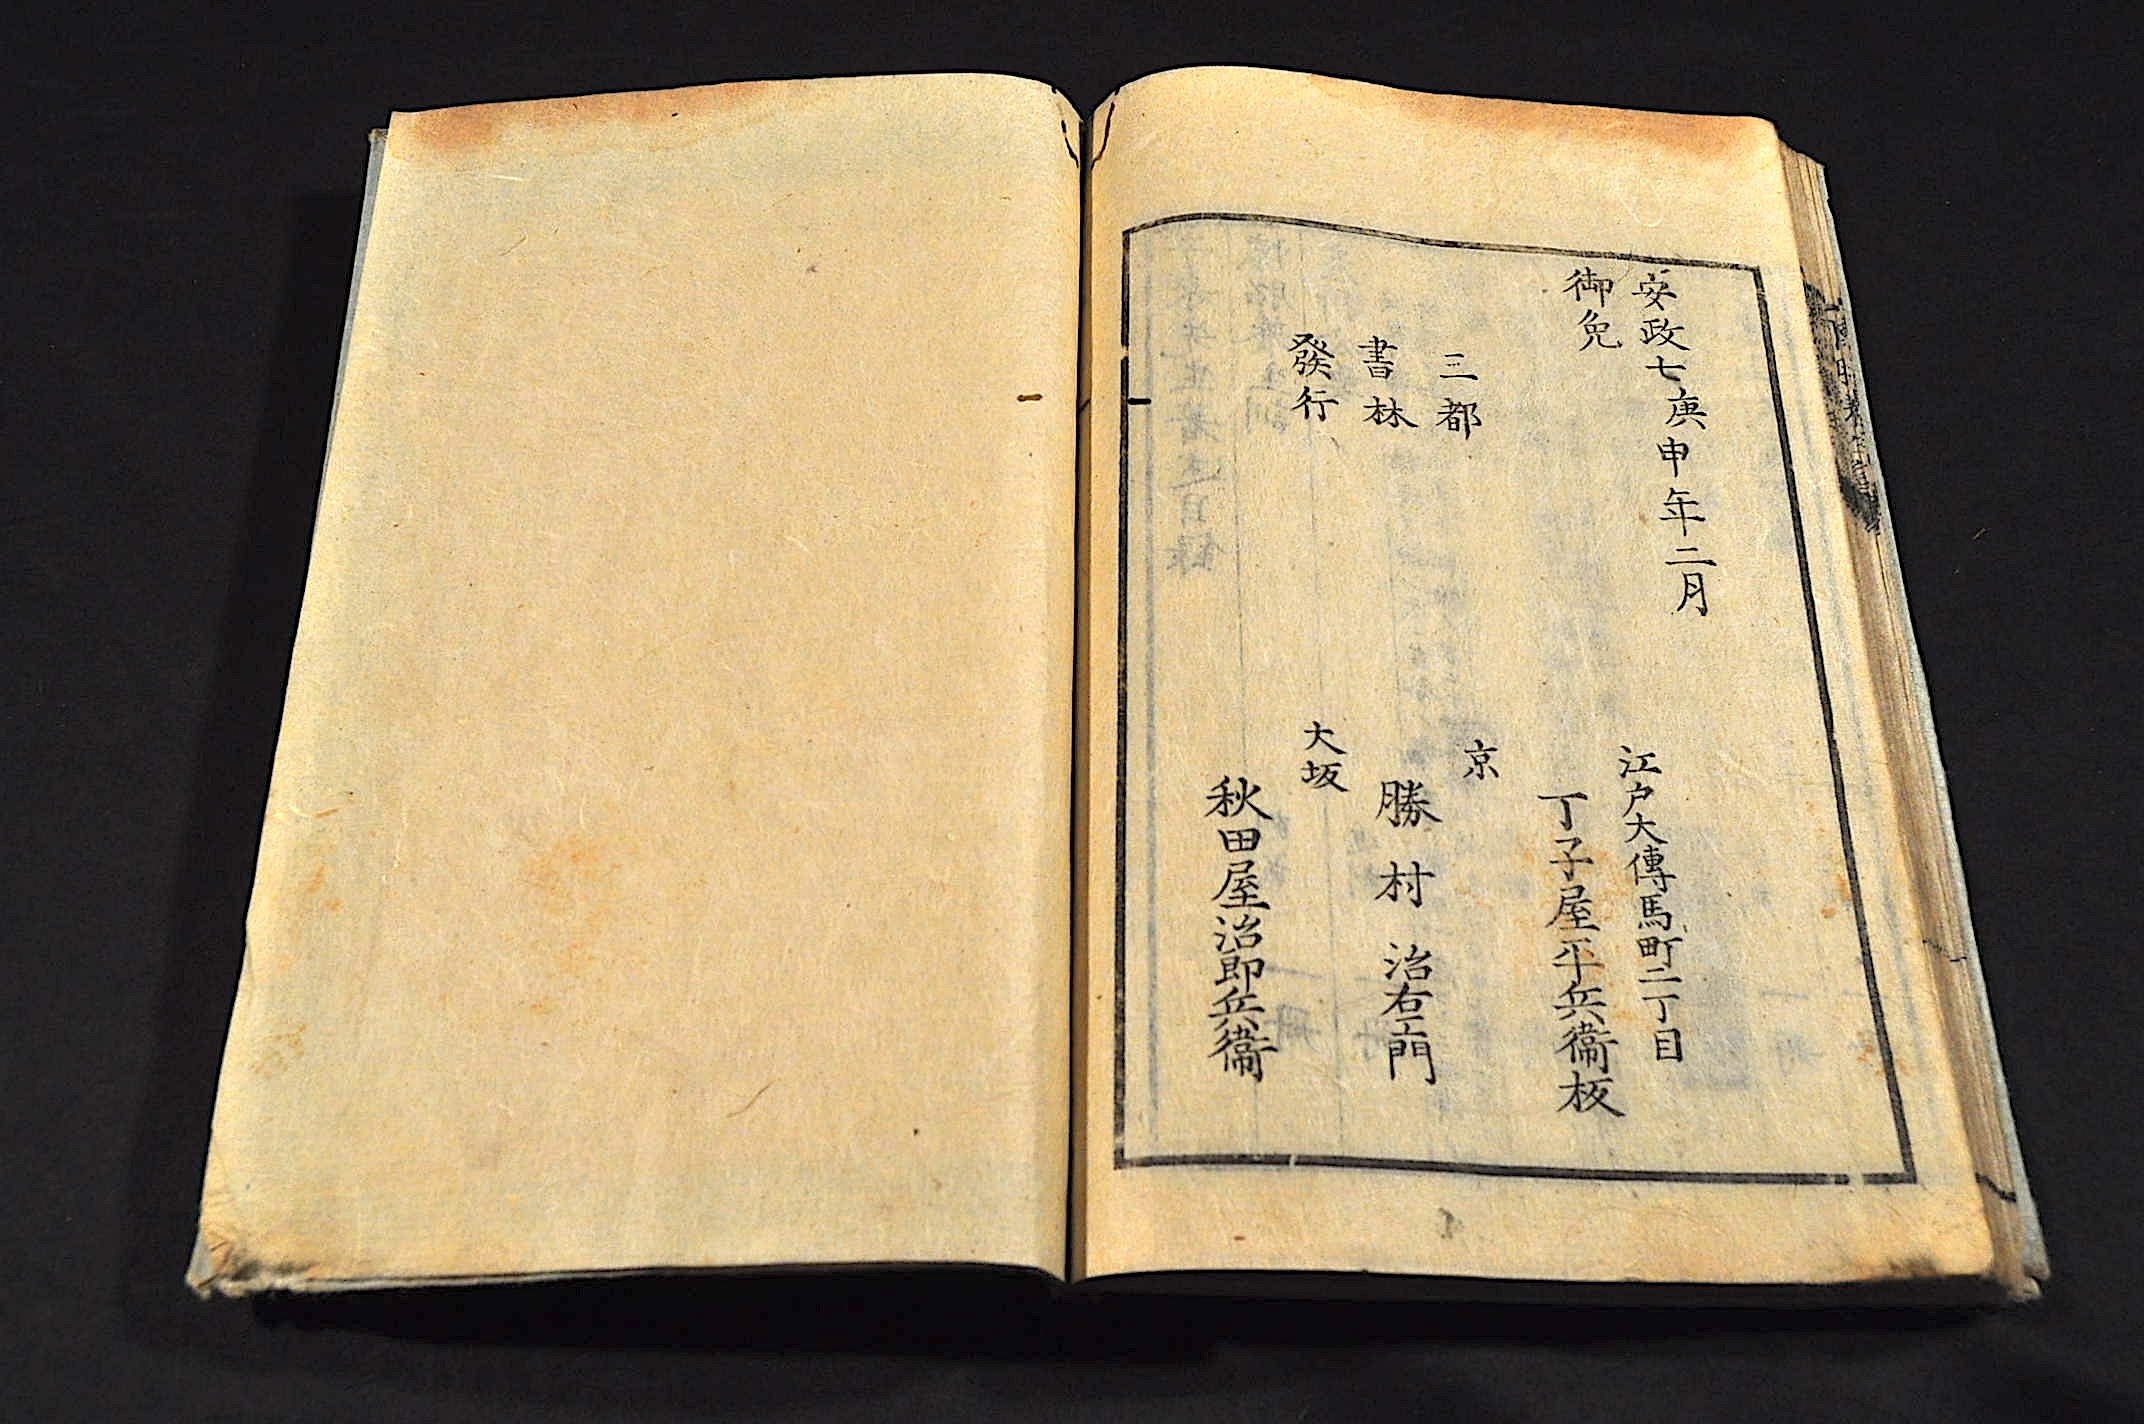 安政七庚申年二月
御免
三都
書林
發行
江戸大傳馬町二丁目
丁子屋平兵衞板
京
勝村治右エ門
大坂
秋田屋治郎兵衞